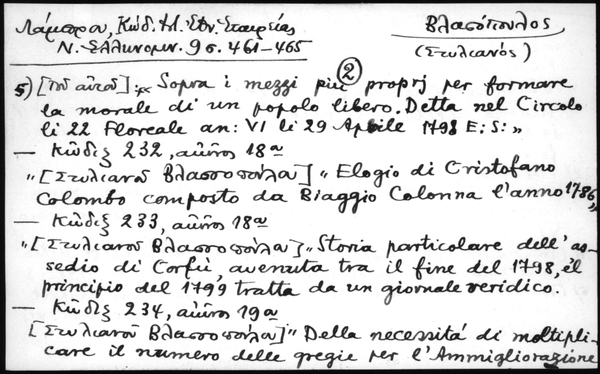 Λάμπρου, Κώδ. Ἱλ. Ἐθν. Ἑταιρείας
Ν. Ἑλληνομν. 9 σ. 461-465
Βλασόπουλος
(Στυλιανός)
2
5) [τοῦ αὐτοῦ]: Sopra i mezzi più proprj per formare
la morale di un popolo libero. Detta nel Circolo
li 22 Floreale an: VI li 29 Aprile 1798 E: S: »
— Κῶδιξ 232, αἰῶνος 18ου
"[Στυλιανοῦ Βλασσοπούλου] "Elogio di Cristofano
Colombo composto da Biaggio Colonna l'anno 1786"
— Κῶδιξ 233, αἰῶνος 18ου
"[Στυλιανοῦ Βλασσοπούλου] "Storia particolare dell' as-
sedio di Corfù, avenuta tra il fine del 1798, él
principio del 1799 tratta da un giornale veridico.
— Κῶδιξ 234, αἰῶνος 19ου
[Στυλιανοῦ Βλασσοπούλου] "Della necessitá di moltipli-
care il numero delle gregie per l'Ammigliorazione